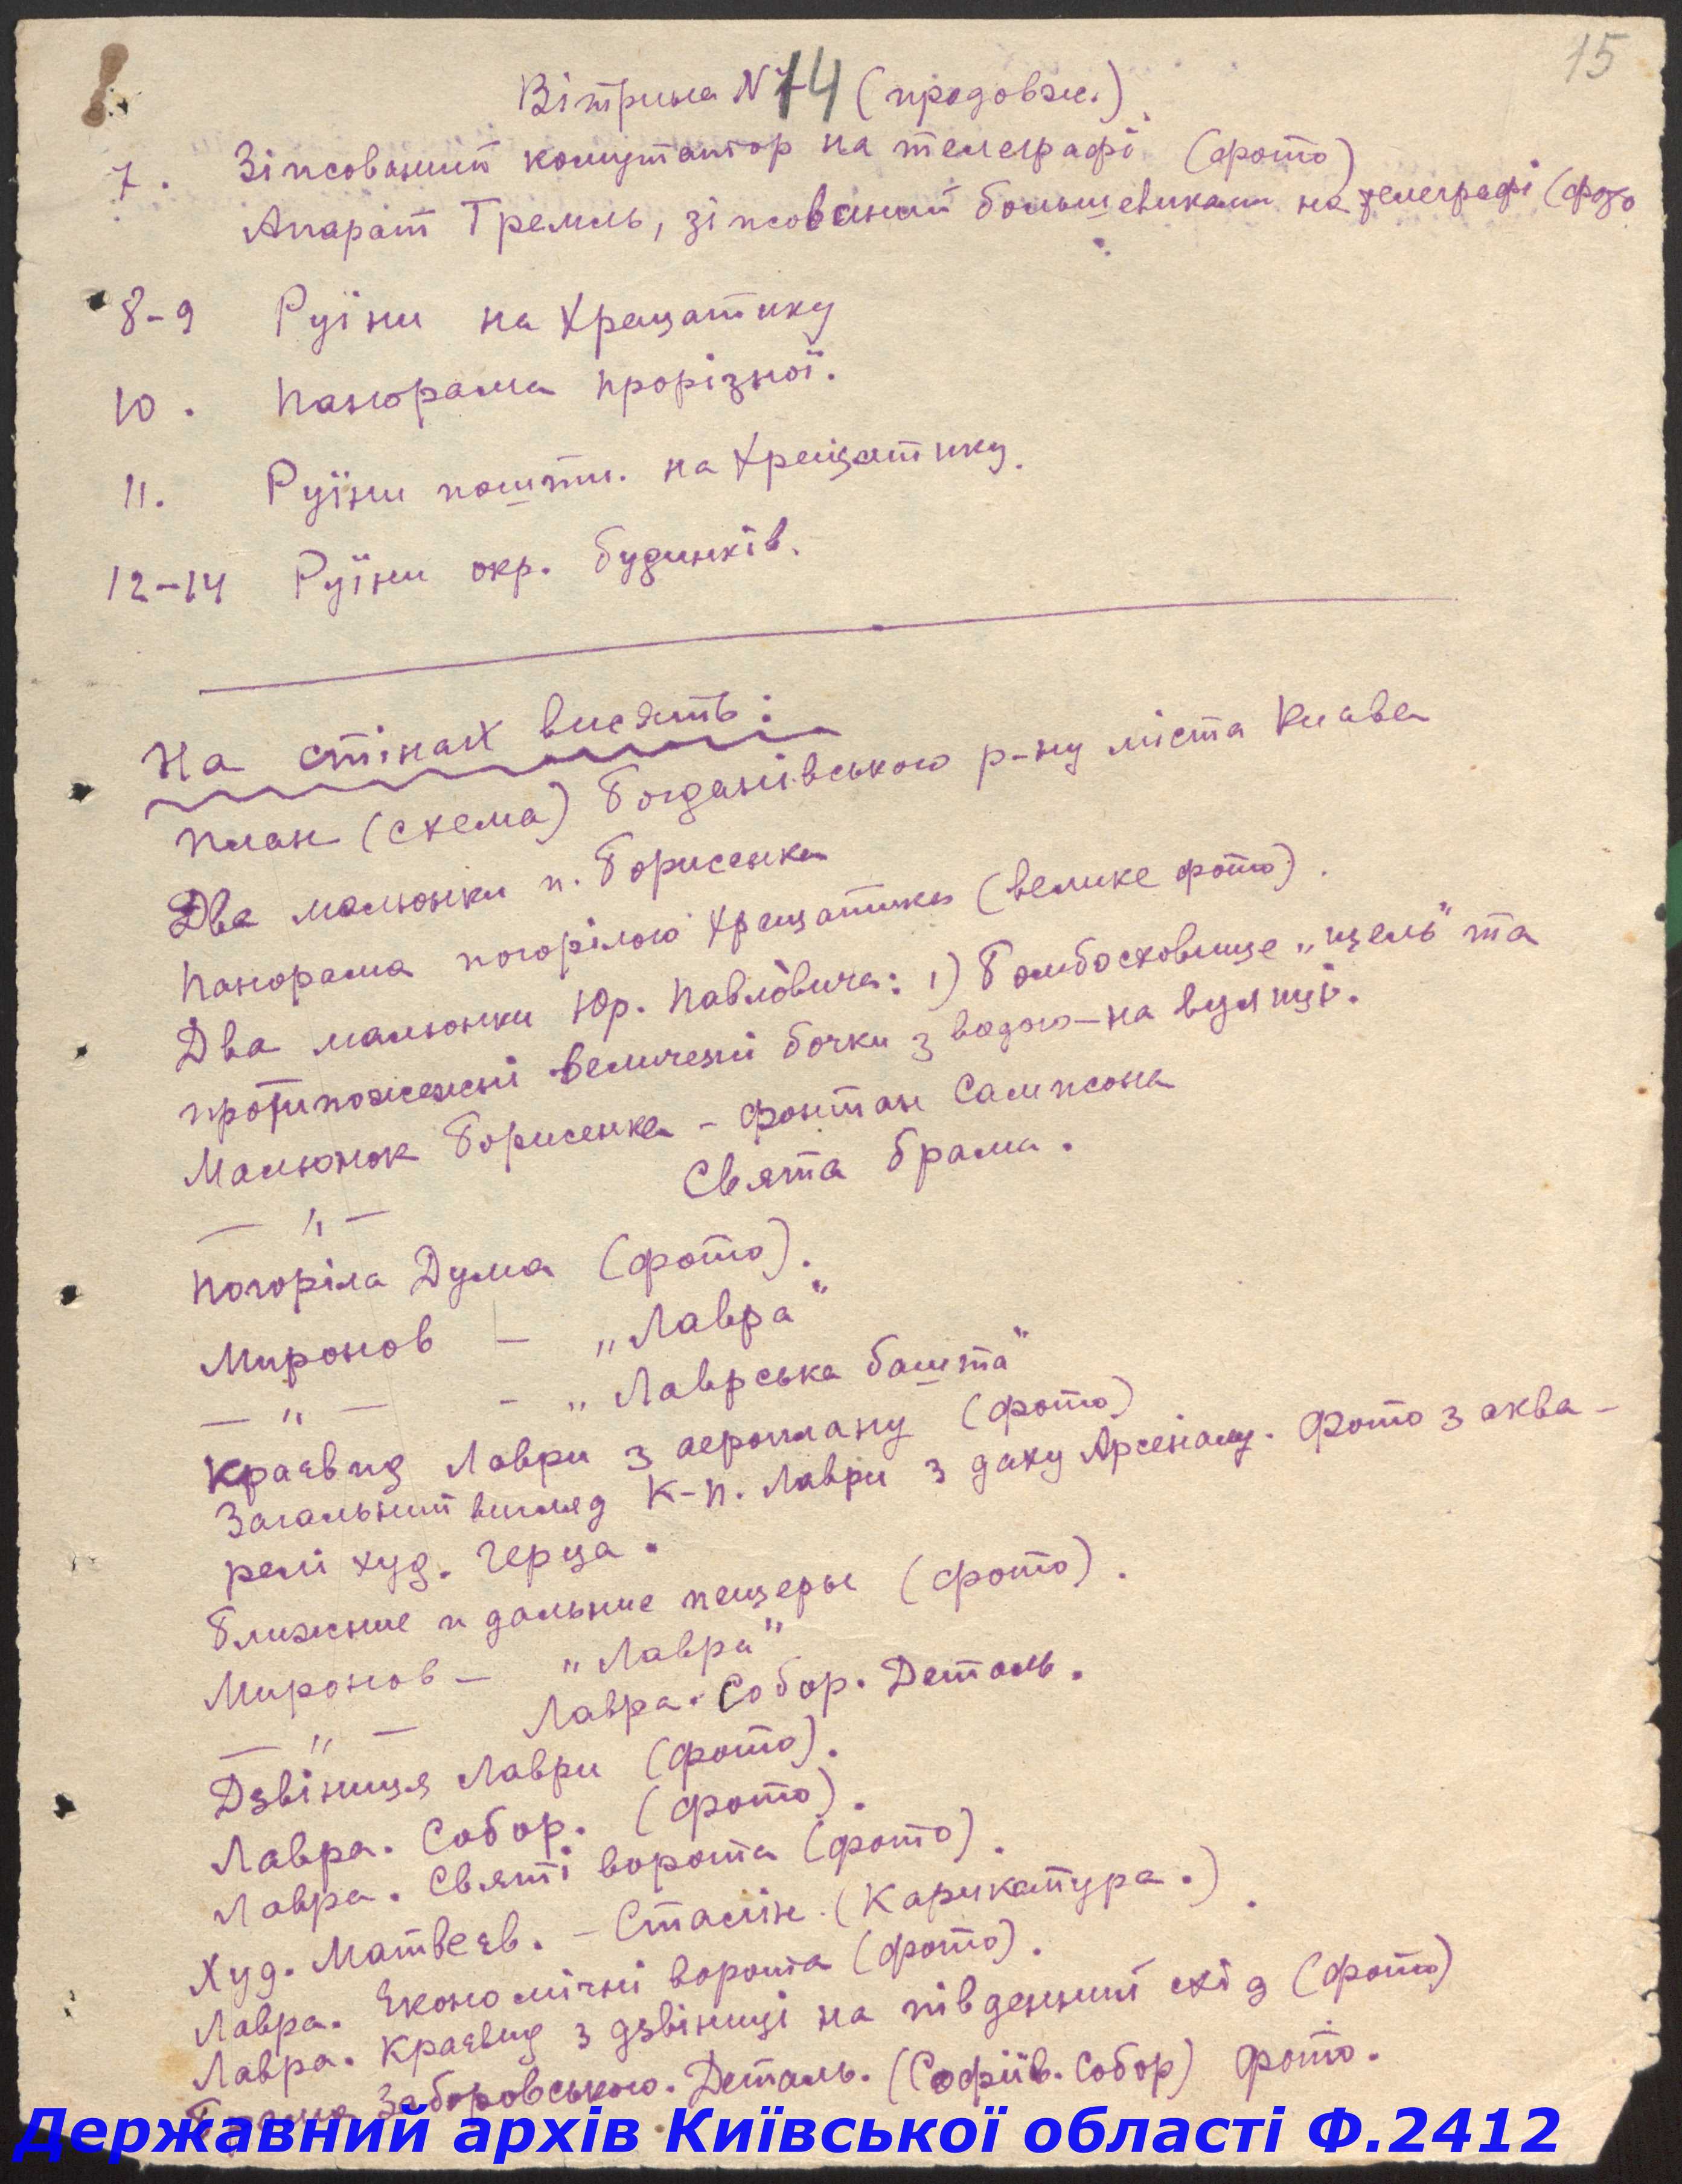 15
Вітрина N 14 (продовж.)
7. Зіпсований комутатор на телеграфі (фото)
Апарат Тремль, зіпсований большевиками на телеграфі (фото
8-9 Руїни на Хрещатику
10. Панорама Прорізної.
11. Руїни пошти. на Хрещатику.
12-14 Руїни окр. будинків.
На стінах висять:
План (схема) Богданівського р-ну міста Києва
Два малюнки п. Борисенка
Панорама погорілого Хрещатика (велике фото).
Два малюнки Юр. Павловича: 1) Бомбосховище „щель" та
протипожежні величезні бочки з водою - на вулиці.
Малюнок Борисенка - Фонтан Сампсона
— " — Свята брама.
Погоріла Дума (фото).
Миронов - „Лавра"
— " — - „Лаврська башта"
Краєвид Лаври з аероплану (фото)
Загальний вигляд К-П. Лаври з даху Арсеналу. Фото з аква-
релі худ. Герца.
Ближние и дальние пещеры (фото).
Миронов - "Лавра"
— " — Лавра. Собор. Деталь.
Дзвіниця Лаври (фото).
Лавра. Собор. (фото).
Лавра. Святі ворота (фото).
Худ. Матвеєв. - Сталін. (Карикатура.).
Лавра. Економічні ворота (фото).
Лавра. Краєвид з дзвіниці на південний схід (фото)
Заборовського. Деталь. (Софіїв. Собор) фото.
Державний архів Київської області Ф.2412